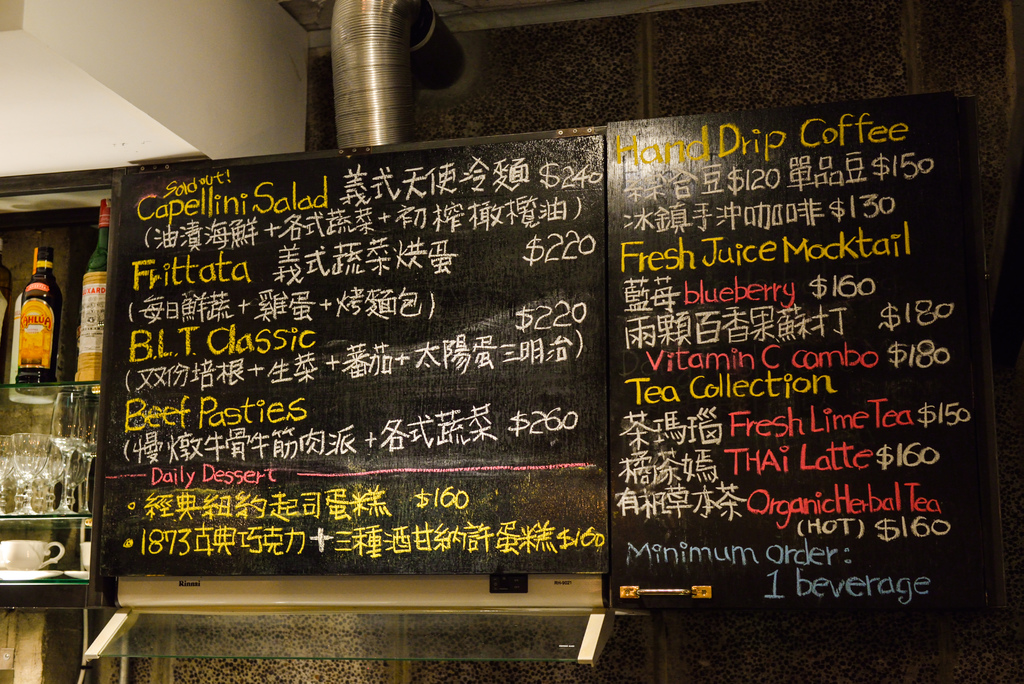 Sold out!
Capellini Salad 義式天使冷麵 $240
(油漬海鮮+各式蔬菜+初榨橄欖油)
Frittata 義式蔬菜烘蛋 $220
(每日鮮蔬+雞蛋+烤麵包)
B.L.T. Classic $220
(双份培根+生菜+蕃茄+太陽蛋三明治)
Beef Pasties
(慢燉牛骨牛筋肉派+各式蔬菜 $260
Daily Dessert
•經典紐約起司蛋糕 $160
•1873古典巧克力+三種酒甘納許蛋糕$160
Rinnai
Hand Drip Coffee
綜合豆$120 單品豆$150
冰鎮手沖咖啡$130
Fresh Juice Mocktail
藍莓blueberry $160
兩顆百香果蘇打 $180
Vitamin C combo $180
Tea Collection
茶瑪瑙 Fresh Lime Tea $150
橘茶嫣 THAi Latte $160
有機草本茶 Organic Herbal Tea
(HOT) $160
Minimum order:
1 beverage